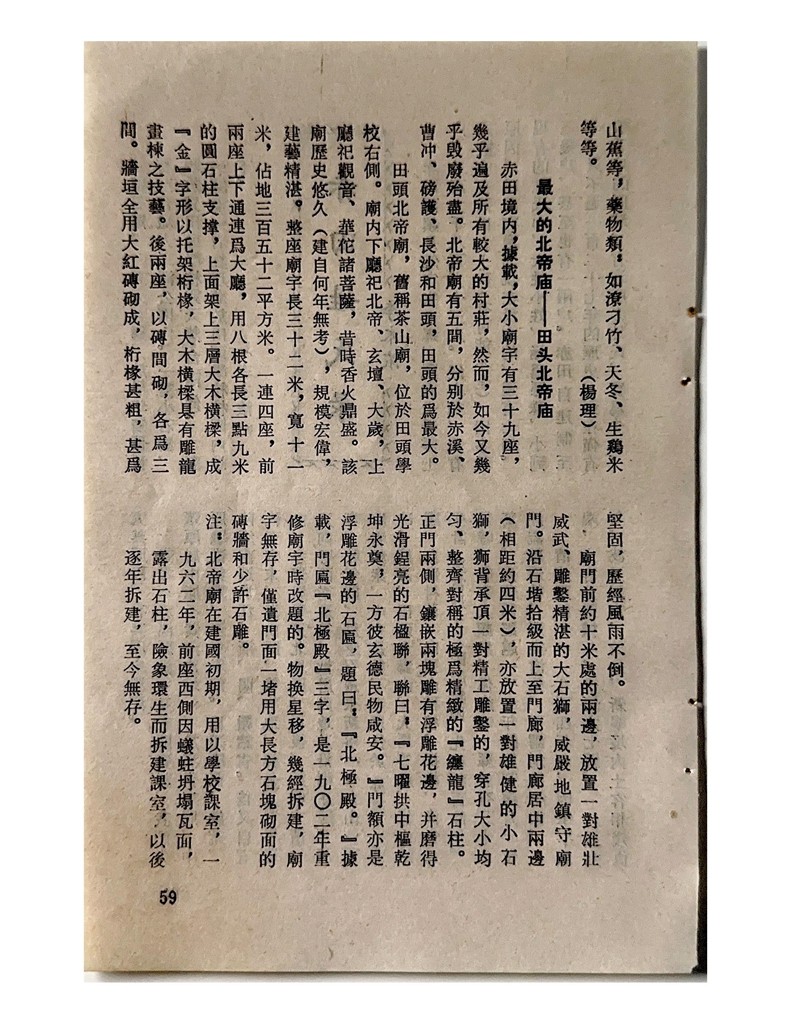 山蕉等，藥物類：如潦刁竹、天冬、生鷄米
等等。　　　　　　　　　　（楊理）
最大的北帝庙——田头北帝庙
赤田境内，據載，大小廟宇有三十九座，
幾乎遍及所有較大的村莊，然而，如今又幾
乎毁廢殆盡。北帝廟有五間，分别於赤溪、
曹冲、磅護、長沙和田頭，田頭的爲最大。
田頭北帝廟，舊稱茶山廟，位於田頭學
校右側。廟内下廳祀北帝、玄壇、大歲，上
廳祀觀音、華佗諸菩薩，昔時香火鼎盛。該
廟歷史悠久（建自何年無考），規模宏偉，
建藝精湛。整座廟宇長三十二米，寬十一
米，佔地三百五十二平方米。一連四座，前
兩座上下通連爲大廳，用八根各長三點九米
的圓石柱支撑，上面架上三層大木横樑，成
『金』字形以托架桁椽，大木横樑具有雕龍
畫棟之技藝。後兩座，以磚間砌，各爲三
間。牆垣全用大紅磚砌成，桁椽甚粗，甚爲
堅固，歷經風雨不倒。
廟門前約十米處的兩邊，放置一對雄壯
威武、雕鑿精湛的大石獅，威嚴地鎮守廟
門。沿石堦拾級而上至門廊，門廊居中兩邊
（相距約四米），亦放置一對雄健的小石
獅，獅背承頂一對精工雕鑿的，穿孔大小均
匀、整齊對稱的極爲精緻的『纏龍』石柱。
正門兩側，鑲嵌兩塊雕有浮雕花邊，并磨得
光滑鋥亮的石楹聯，聯曰：『七曜拱中樞乾
坤永奠，一方彼玄德民物咸安。』門額亦是
浮雕花邊的石匾，題曰：『北極殿。』據
載，門匾『北極殿』三字，是一九〇二年重
修廟宇時改題的。物换星移，幾經拆建，廟
宇無存，僅遺門面一堵用大長方石塊砌面的
磚牆和少許石雕。
注：北帝廟在建國初期，用以學校課室，一
九六二年，前座西側因蟻蛀坍塌瓦面，
露出石柱，險象環生而拆建課室，以後
逐年拆建，至今無存。
59